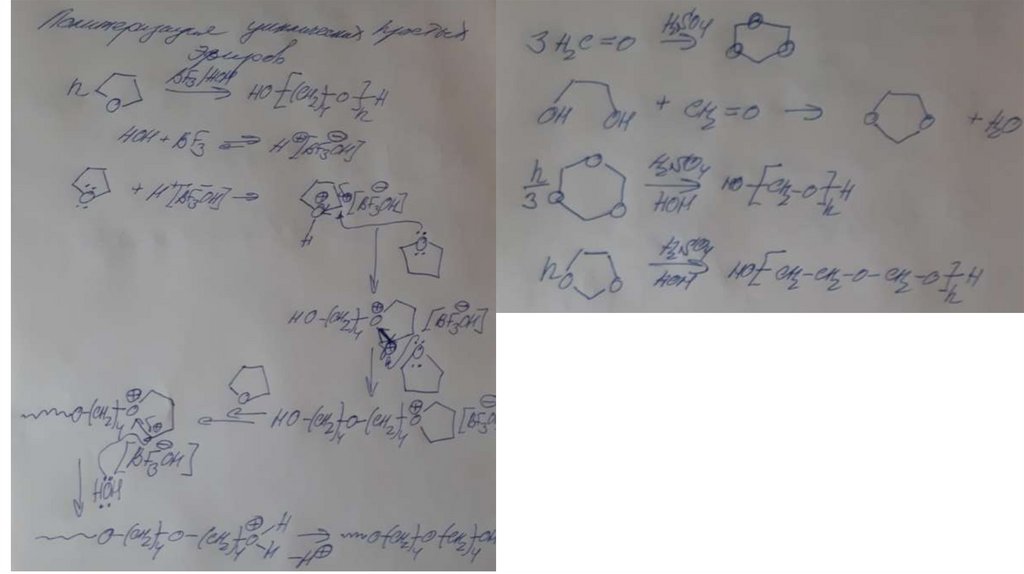 Полимеризация циклических простых
эфиров
n O BF₃/HOH → HO-[-(CH₂)₄-O-]ₙ-H
HOH + BF₃ ⇌ H⊕[BF₃OH]⊖
O + H⁺[BF₃OH]⁻ → O⊕ H δ⊕ [BF₃OH]⊖
O
HO-(CH₂)₄-O⊕ [BF₃OH]⊖
O
~O-(CH₂)₄-O⊕ δ⊕ ← O HO-(CH₂)₄-O-(CH₂)₄-O⊕ [BF₃OH]⊖
[BF₃OH]⊖
HOH
~O-(CH₂)₄-O-(CH₂)₄-O⊕ H H → -H⊕ ~O-(CH₂)₄-O-(CH₂)₄-OH
3 H₂C=O H₂SO₄ → O O O
OH OH + CH₂=O → O O + H₂O
n/3 O O O H₂SO₄ HOH → HO-[-CH₂-O-]ₙ-H
n O O H₂SO₄ HOH → HO-[-CH₂-CH₂-O-CH₂-O-]ₙ-H